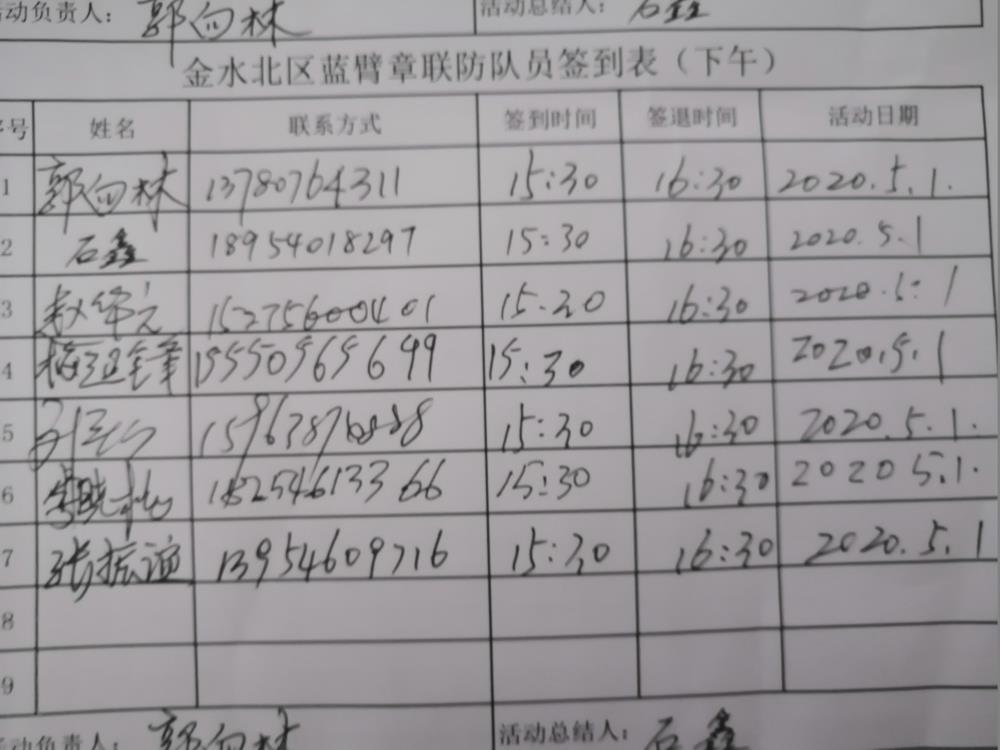 活动负责人： 郭向林 活动总结人： 石鑫
金水北区蓝臂章联防队员签到表（下午）
序号 姓名 联系方式 签到时间 签退时间 活动日期
1 郭向林 13780764311 15:30 16:30 2020.5.1.
2 石鑫 18954018297 15:30 16:30 2020.5.1
3 15275600401 15:30 16:30 2020.5.1
4 15550565699 15:30 16:30 2020.5.1
5 15:30 16:30 2020.5.1.
6 18254613366 15:30 16:30 2020 5.1.
7 张振谊 13954609716 15:30 16:30 2020.5.1
8
9
活动负责人： 郭向林 活动总结人： 石鑫